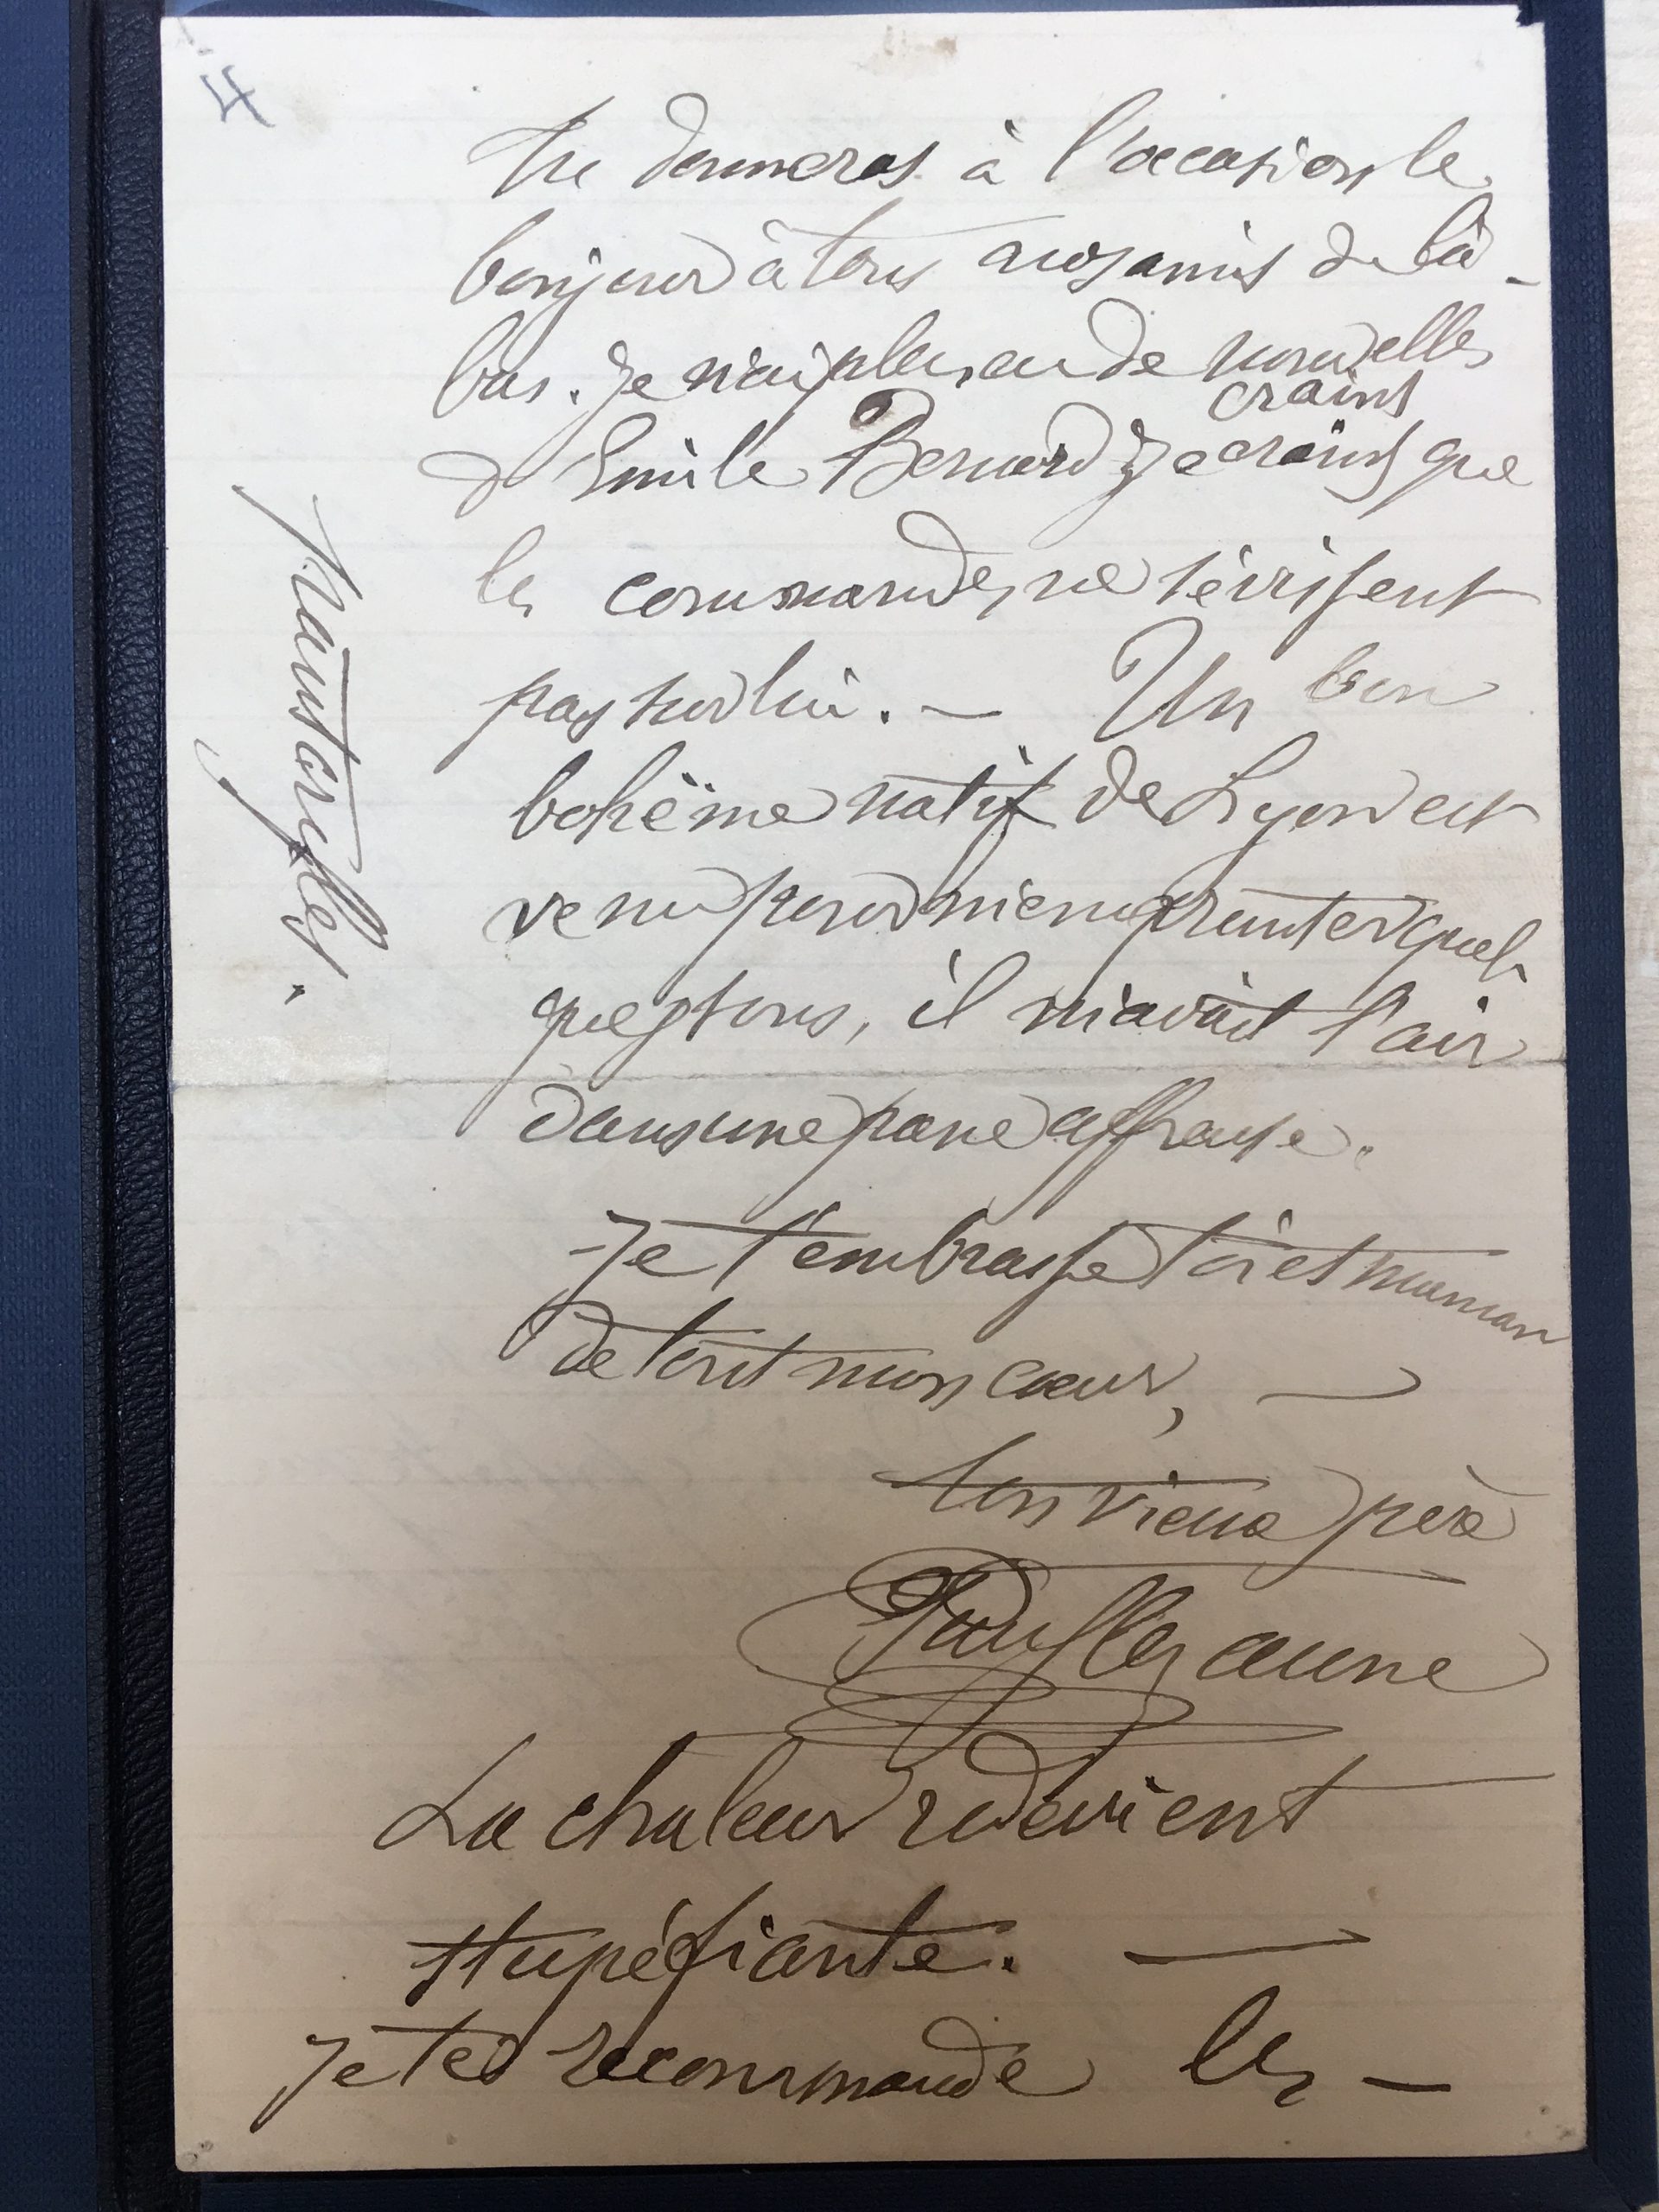 4
Tu donneras à l'occasion le
bonjour à tous nos amis de là-
bas. Je n'ai plus eu de nouvelles
crains
d'Emile Bernard Je crains que
les commandes ne sévissent
pas sur lui. — Un bon
bohème natif de Lyon est
venu pour m'emprunter quel-
ques sous, il m'avait l'air
dans une pane affreuse.
Je t'embrasse toi et maman
de tout mon cœur, —
ton vieux père
Paul Cezanne
La chaleur redevient
stupéfiante. —
Je te recommande les —
pantoufles.